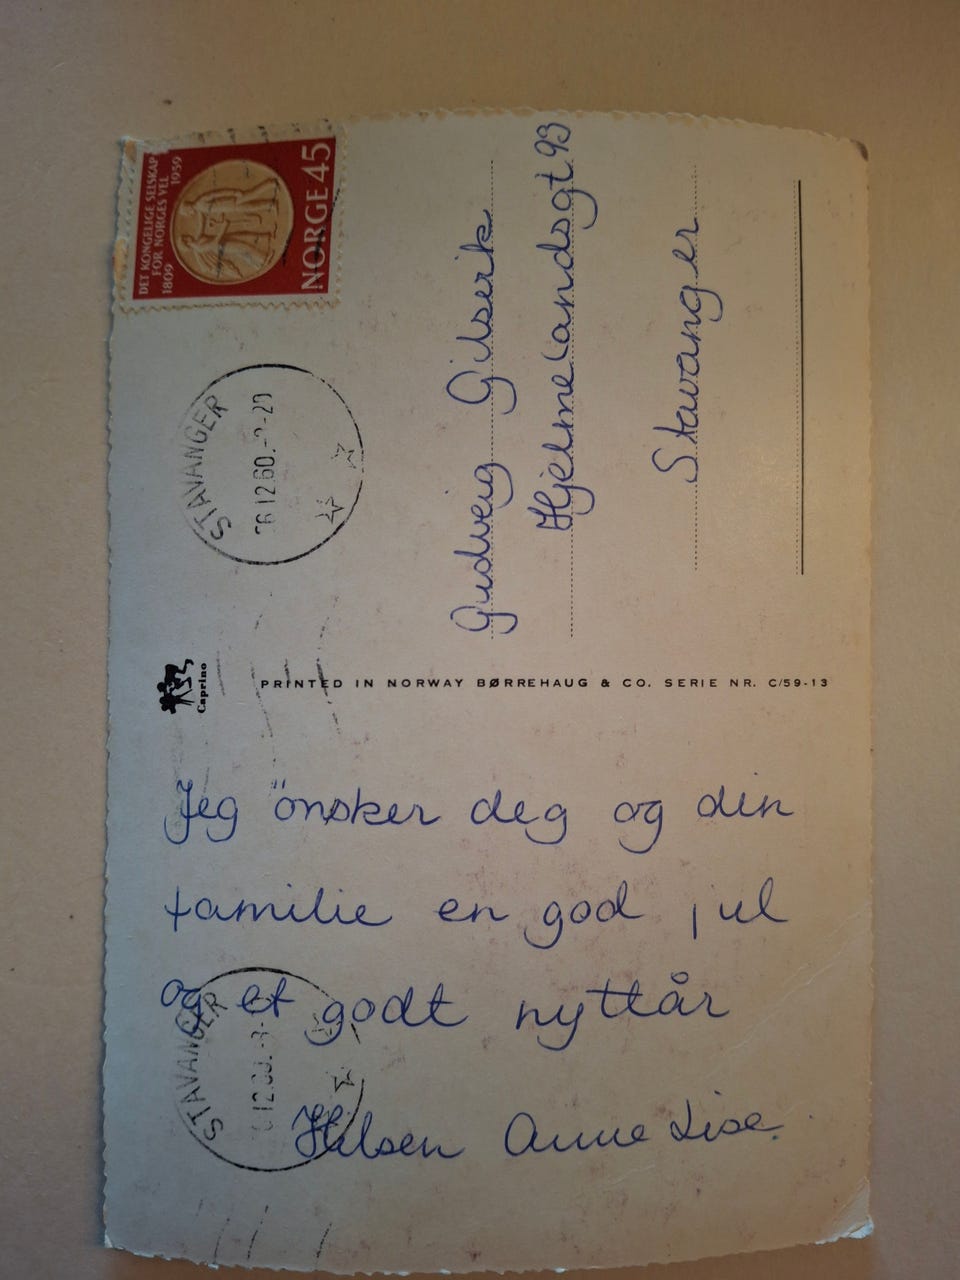 Jeg önsker deg og din
familie en god jul
og et godt nyttår
Hilsen Anne Lise.
Caprino
PRINTED IN NORWAY BØRREHAUG & CO. SERIE NR. C/59-13
DET KONGELIGE SELSKAP
FOR NORGES VEL
1809 1959
NORGE 45
STAVANGER
12.60.
STAVANGER
Gudveig
Hjelmelandsgt. 93
Stavanger